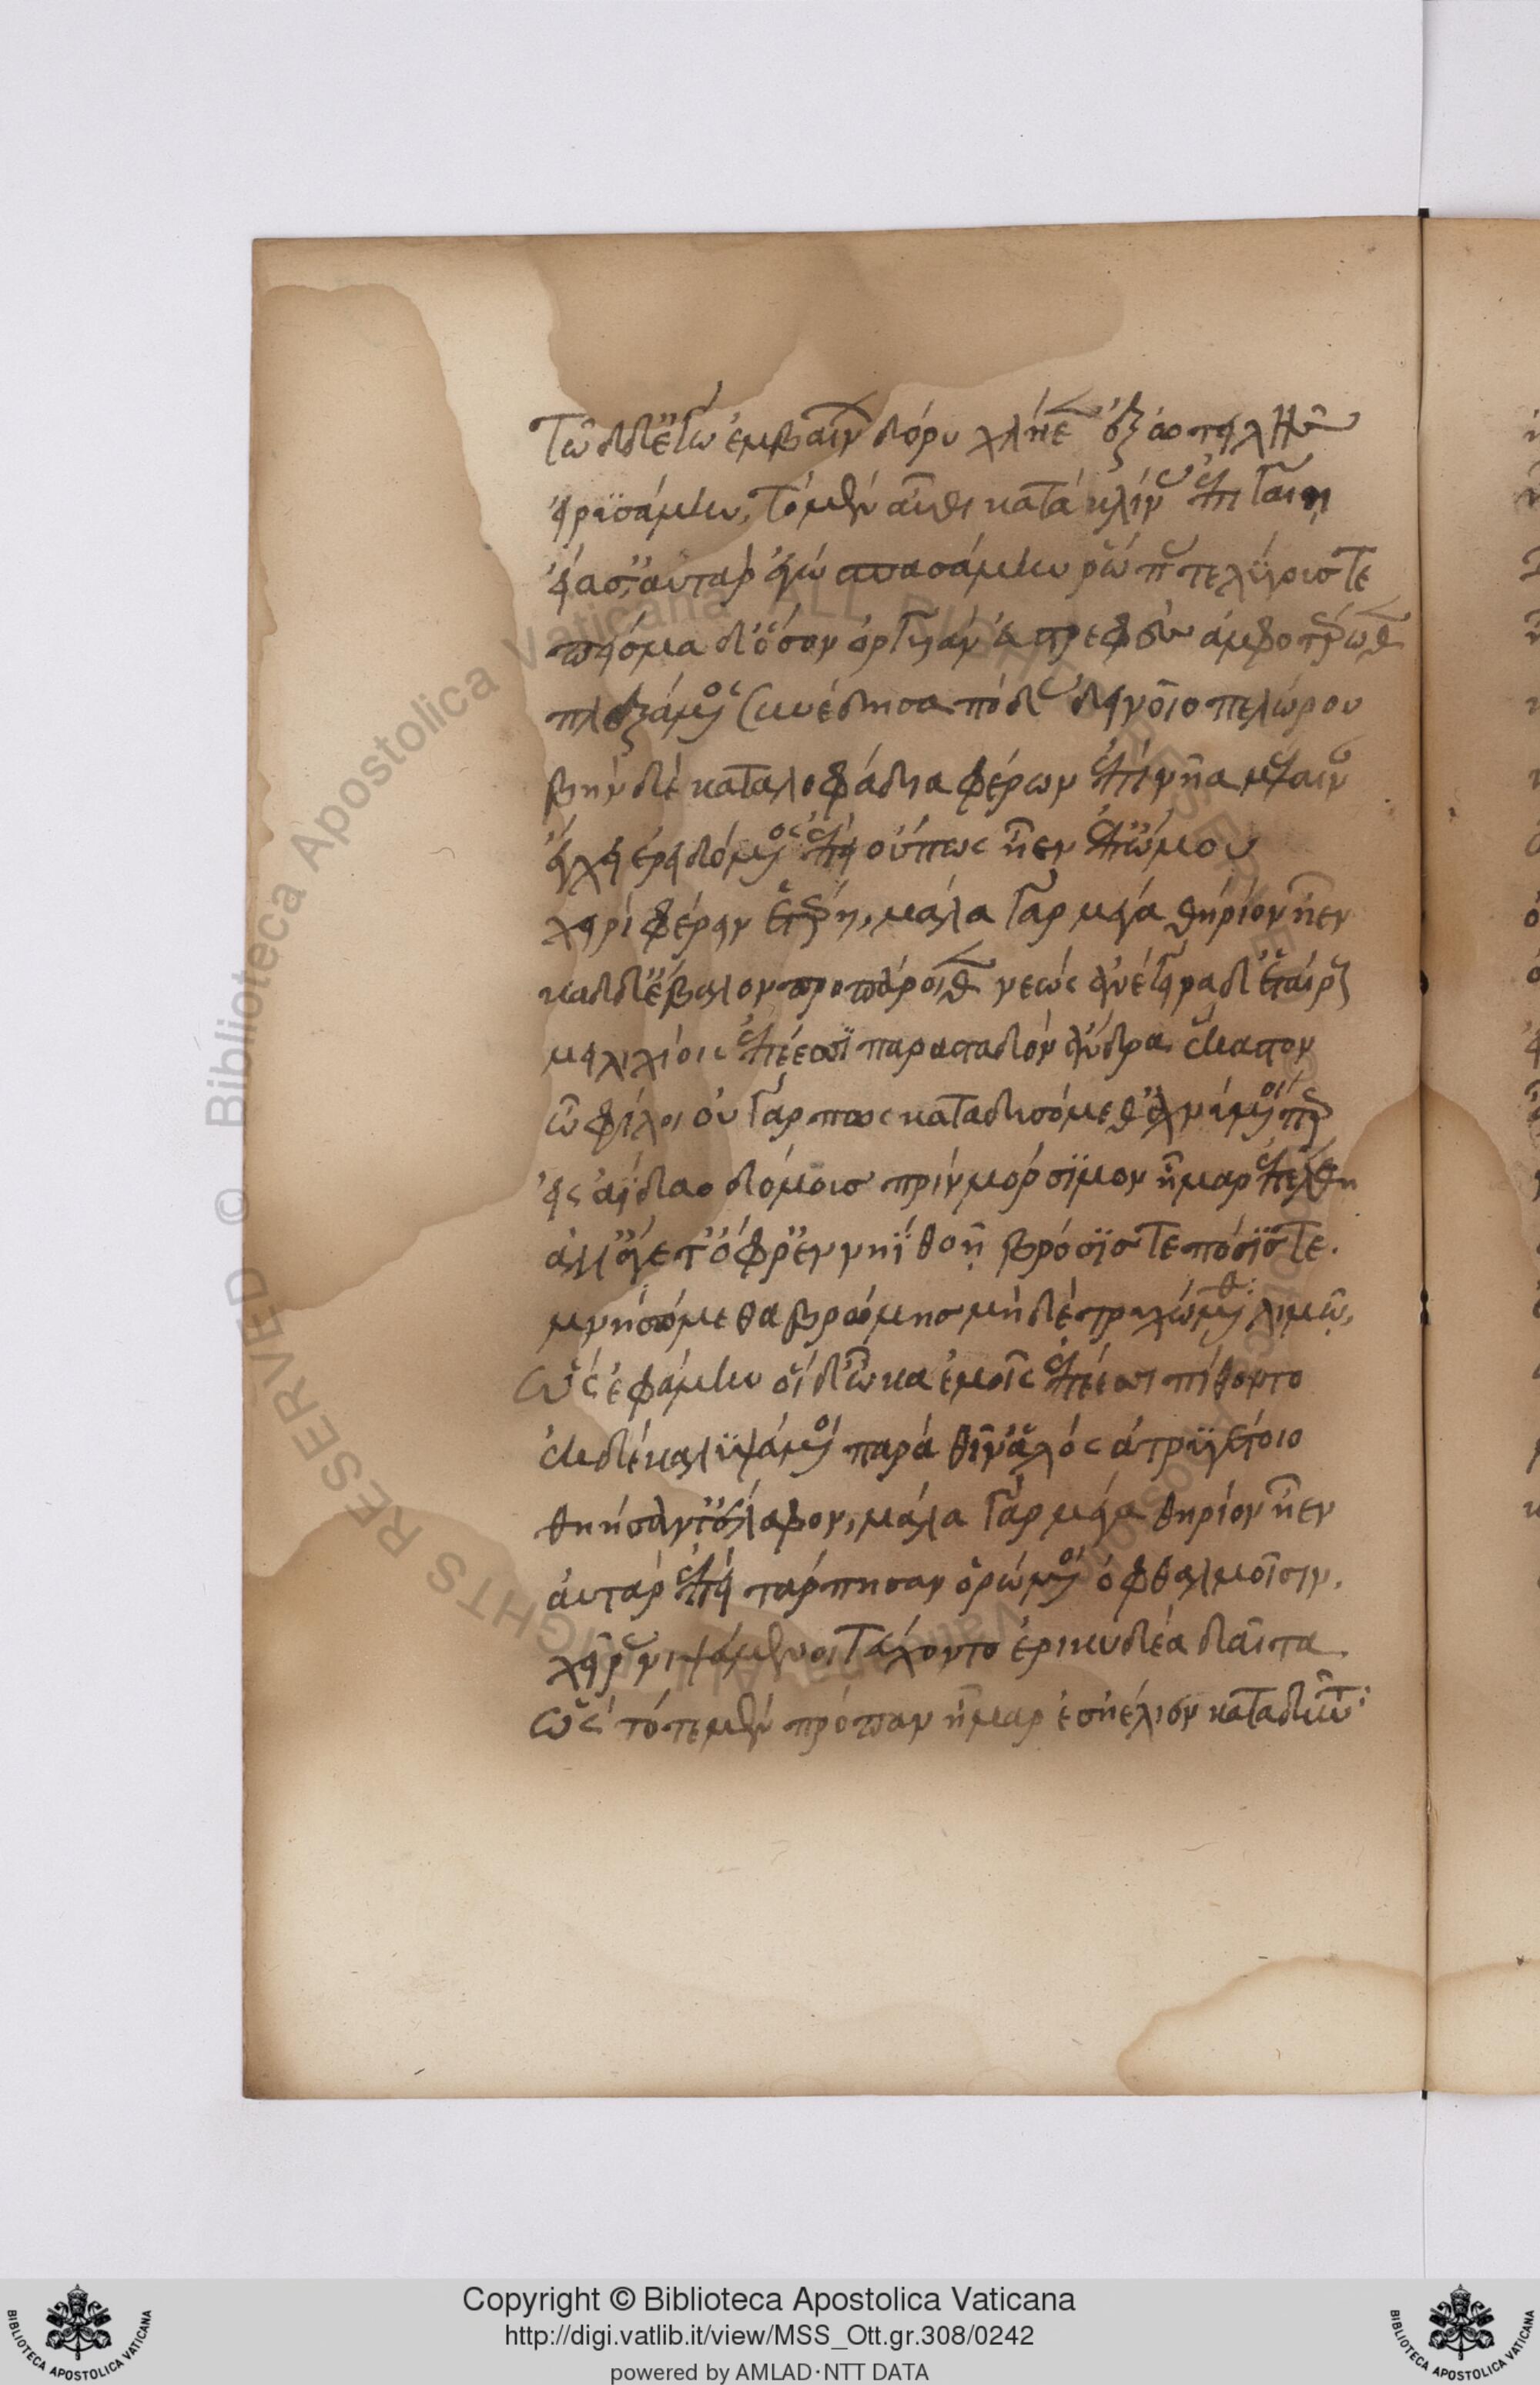 τῶ δ' ἐγὼ ἐμβαίνων δόρυ χάλκεον ἐξ ὠτειλῆς
εἰρυσάμην, τὸ μὲν αὖθι κατακλίνας ἐπὶ γαίῃ
εἴασ' αὐτὰρ ἐγὼ σπασάμην ῥῶπάς τε λύγους τε
πεῖσμα δ' ὅσον ὄργυιαν ἐυστρεφὲς ἀμφοτέρωθεν
πλεξάμενος συνέδησα πόδας δεινοῖο πελώρου
βῆν δὲ καταλοφάδια φέρων ἐπὶ νῆα μέλαιναν
ἔγχει ἐρειδόμενος ἐπεὶ οὔπως ἦεν ἐπ' ὤμου
χειρὶ φέρειν ἑτέρῃ, μάλα γὰρ μέγα θηρίον ἦεν
καδδ' ἔβαλον προπάροιθεν νεώς ἀνέγειρα δ' ἑταίρους
μειλιχίοις ἐπέεσσι παρασταδὸν ἄνδρα ἕκαστον
ὦ φίλοι οὐ γάρ πως καταδυσόμεθ' ἀχνύμενοί περ
εἰς ἀίδαο δόμους πρὶν μόρσιμον ἦμαρ ἐπέλθῃ
ἀλλ' ἄγετ' ὄφρ' ἐν νηὶ θοῇ βρῶσίς τε πόσις τε.
μνησόμεθα βρώμης μὴ δὲ τρυχώμεθα λιμῷ,
ὣς ἐφάμην οἱ δ' ὦκα ἐμοῖς ἐπέεσσι πίθοντο
ἐκ δὲ καλυψάμενοι παρὰ θῖν' ἁλὸς ἀτρυγέτοιο
θηήσαντ' ἔλαφον, μάλα γὰρ μέγα θηρίον ἦεν
αὐτὰρ ἐπεὶ τάρπησαν ὁρώμενοι ὀφθαλμοῖσιν.
χεῖρας νιψάμενοι τεύχοντο ἐρικυδέα δαῖτα
ὣς τότε μὲν πρόπαν ἦμαρ ἐς ἠέλιον καταδύντα:
Copyright © Biblioteca Apostolica Vaticana
http://digi.vatlib.it/view/MSS_Ott.gr.308/0242
powered by AMLAD·NTT DATA